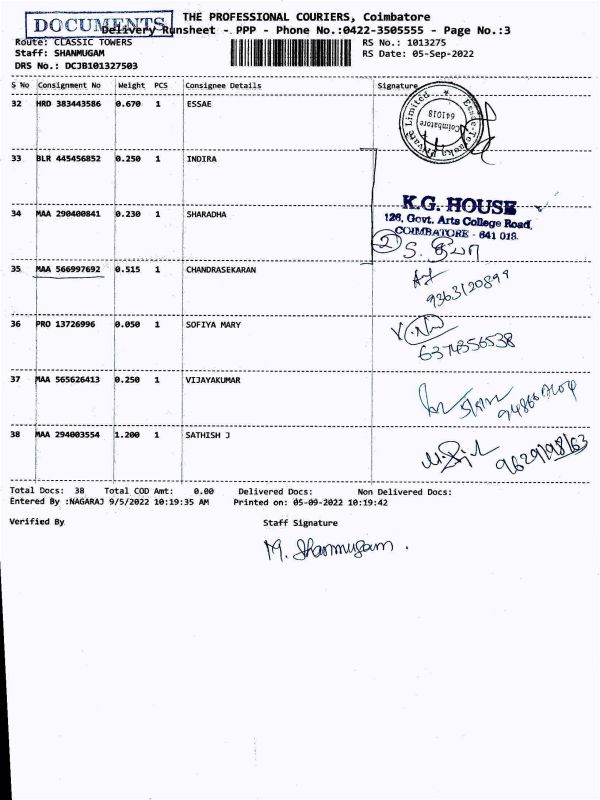 DOCUMENTS
THE PROFESSIONAL COURIERS, Coimbatore
Delivery Runsheet - PPP - Phone No.:0422-3505555 - Page No.:3
Route: CLASSIC TOWERS
RS No.: 1013275
Staff: SHANMUGAM
RS Date: 05-Sep-2022
DRS No.: DCJB101327503
S No Consignment No Weight PCS Consignee Details Signature
32 HRD 383443586 0.670 1 ESSAE
Private Limited
Coimbatore
641018
33 BLR 445456852 0.250 1 INDIRA
K.G. HOUSE
34 MAA 290400841 0.230 1 SHARADHA
126, Govt. Arts College Road,
COIMBATORE - 641 018.
2
35 MAA 566997692 0.515 1 CHANDRASEKARAN
9363120899
36 PRO 13726996 0.050 1 SOFIYA MARY
6374356538
37 MAA 565626413 0.250 1 VIJAYAKUMAR
38 MAA 294003554 1.200 1 SATHISH J
9629198163
Total Docs: 38 Total COD Amt: 0.00 Delivered Docs: Non Delivered Docs:
Entered By :NAGARAJ 9/5/2022 10:19:35 AM Printed on: 05-09-2022 10:19:42
Verified By Staff Signature
M. Shanmugam.